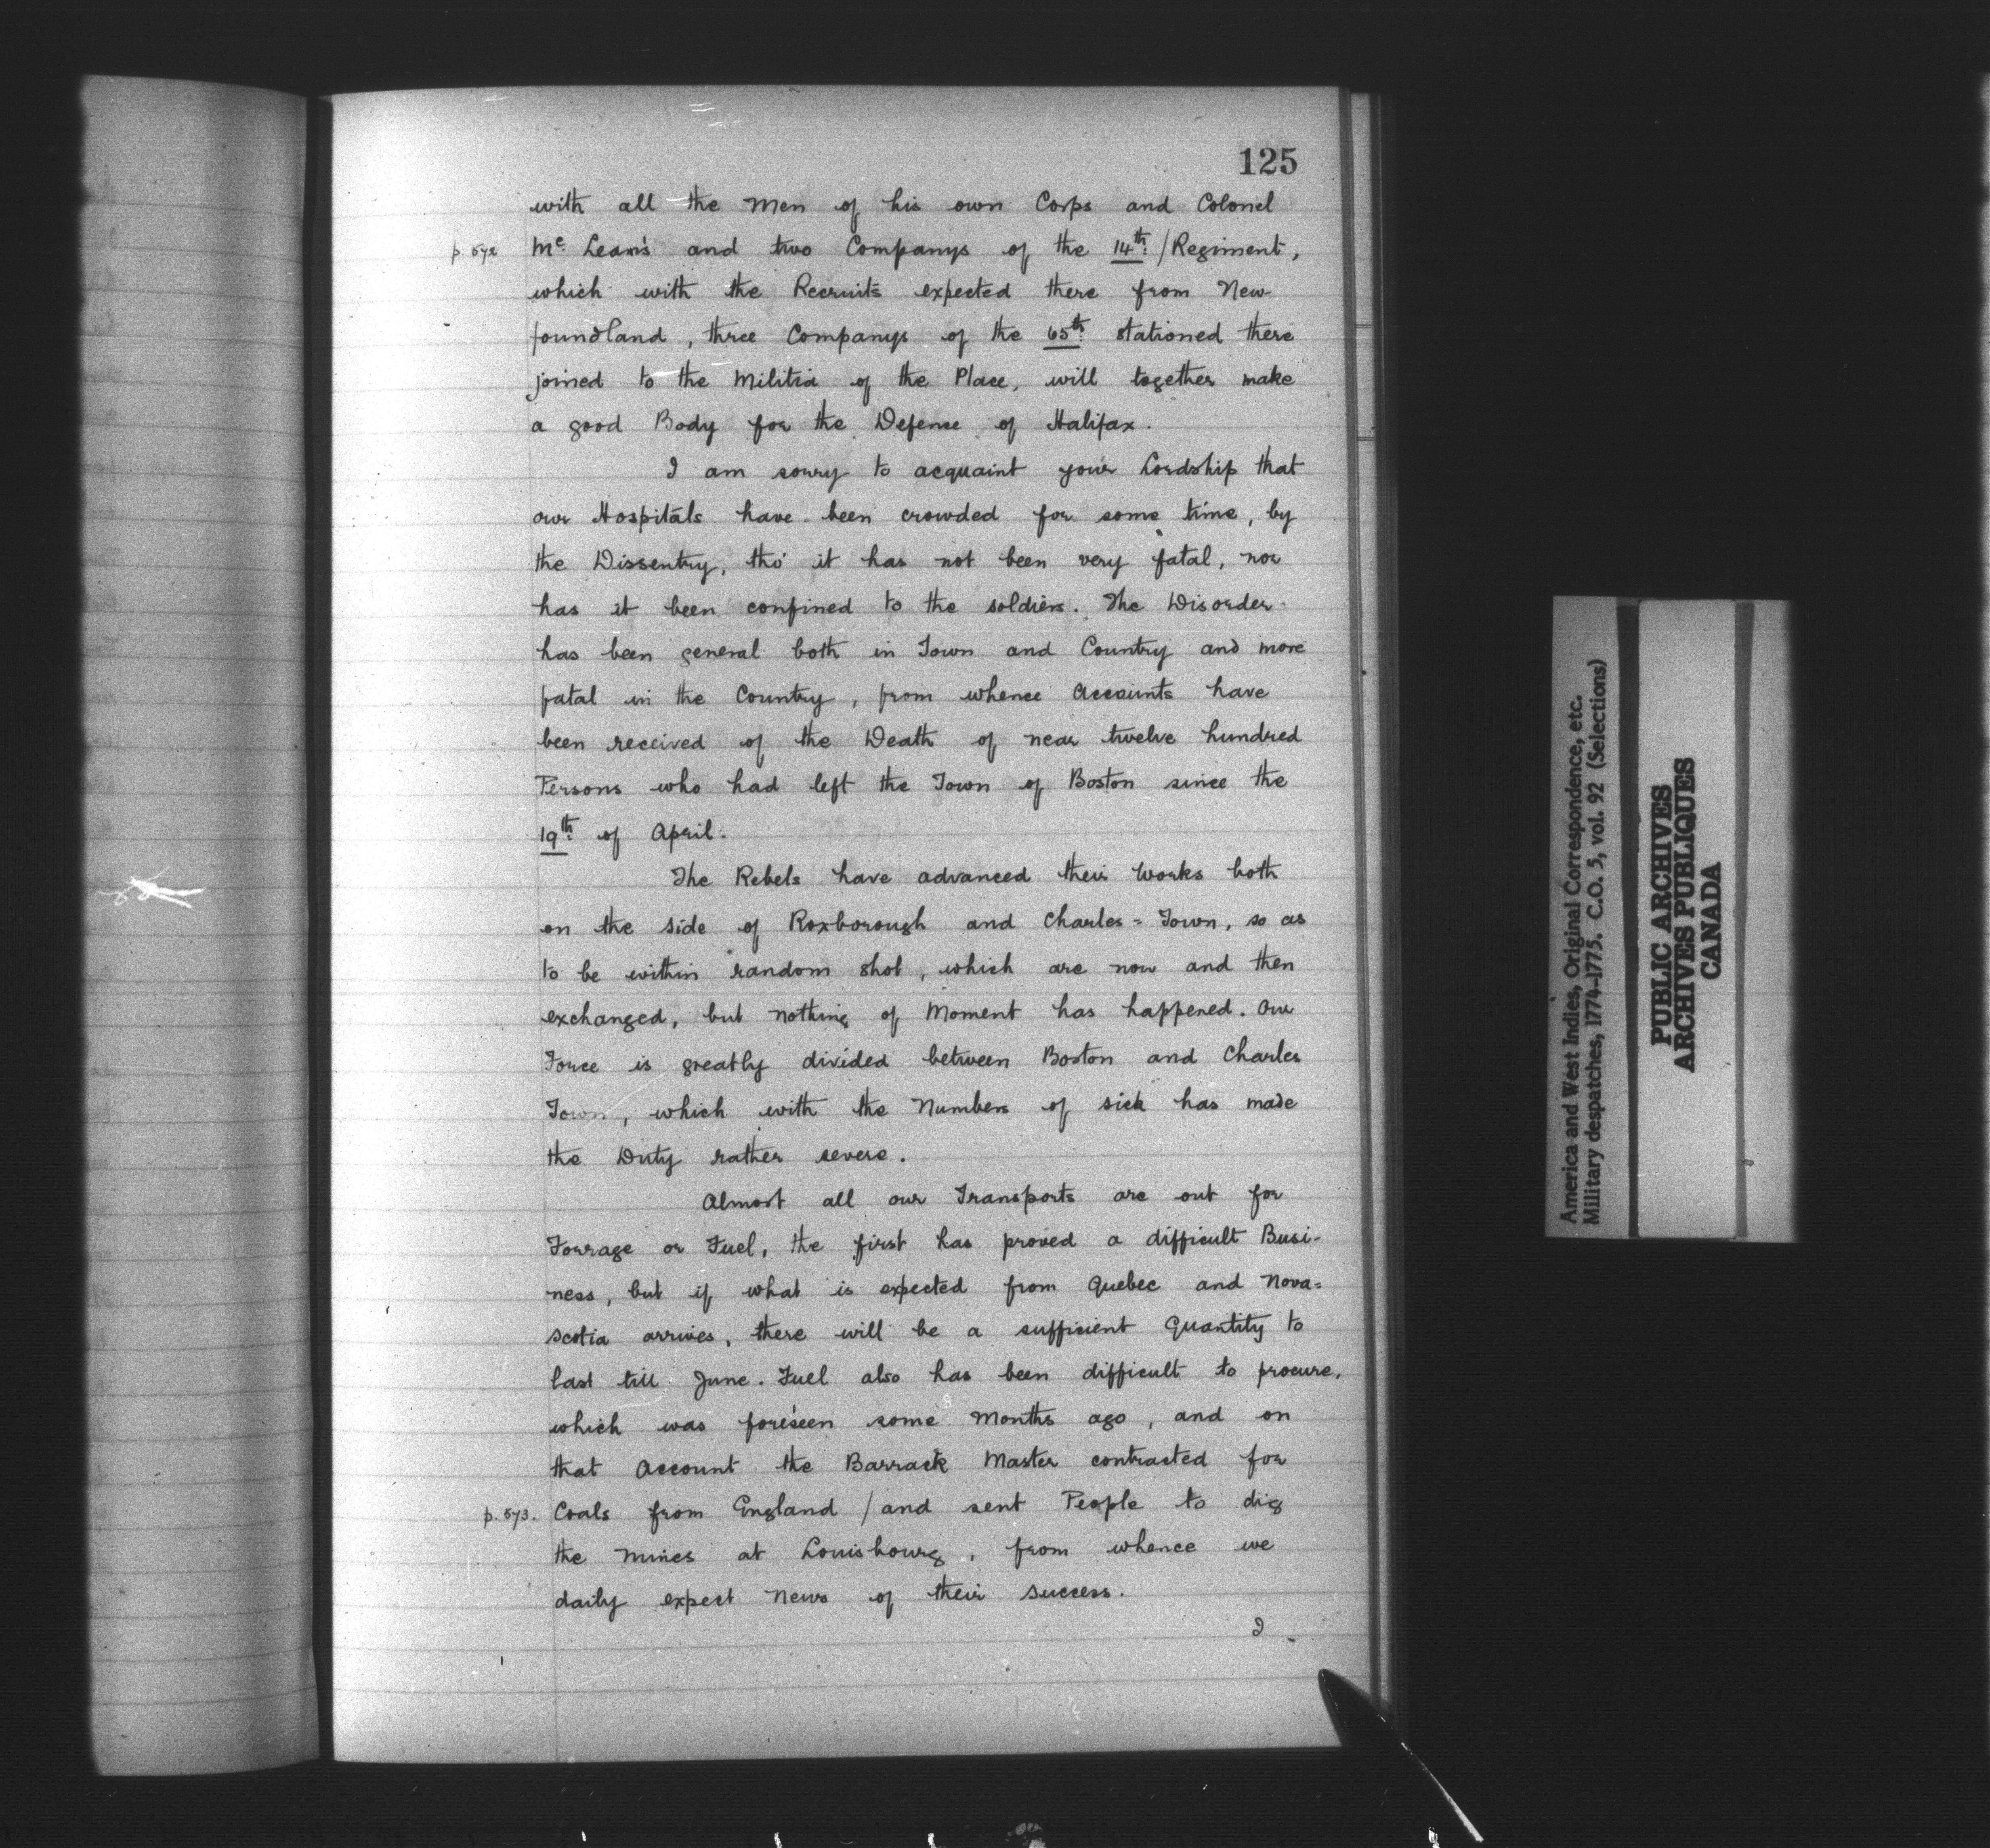 125
with all the Men of his own Corps and Colonel
p. 572 Mc. Lean's and two Companys of the 14th. / Regiment,
which with the Recruits expected there from New-
foundland, three Companys of the 65th. stationed there
joined to the Militia of the Place, will together make
a good Body for the Defence of Halifax.
I am sorry to acquaint your Lordship that
our Hospitals have been crowded for some time, by
the Dissentry, tho' it has not been very fatal, nor
has it been confined to the soldiers. The Disorder
has been general both in Town and Country and more
fatal in the Country, from whence Accounts have
been received of the Death of near twelve hundred
Persons who had left the Town of Boston since the
19th. of April.
The Rebels have advanced their Works both
on the side of Roxborough and Charles=Town, so as
to be within random shot, which are now and then
exchanged, but nothing of Moment has happened. Our
Force is greatly divided between Boston and Charles
Town, which with the Numbers of sick has made
the Duty rather severe.
Almost all our Transports are out for
Forrage or Fuel, the first has proved a difficult Busi-
ness, but if what is expected from Quebec and Nova=
scotia arrives, there will be a sufficient Quantity to
last till June. Fuel also has been difficult to procure,
which was foreseen some Months ago, and on
that Account the Barrack Master contracted for
p. 573. Coals from England / and sent People to dig
the Mines at Louisbourg, from whence we
daily expect News of their success.
I
America and West Indies, Original Correspondence, etc.
Military despatches, 1774-1775. C.O. 5, vol. 92 (Selections)
PUBLIC ARCHIVES
ARCHIVES PUBLIQUES
CANADA